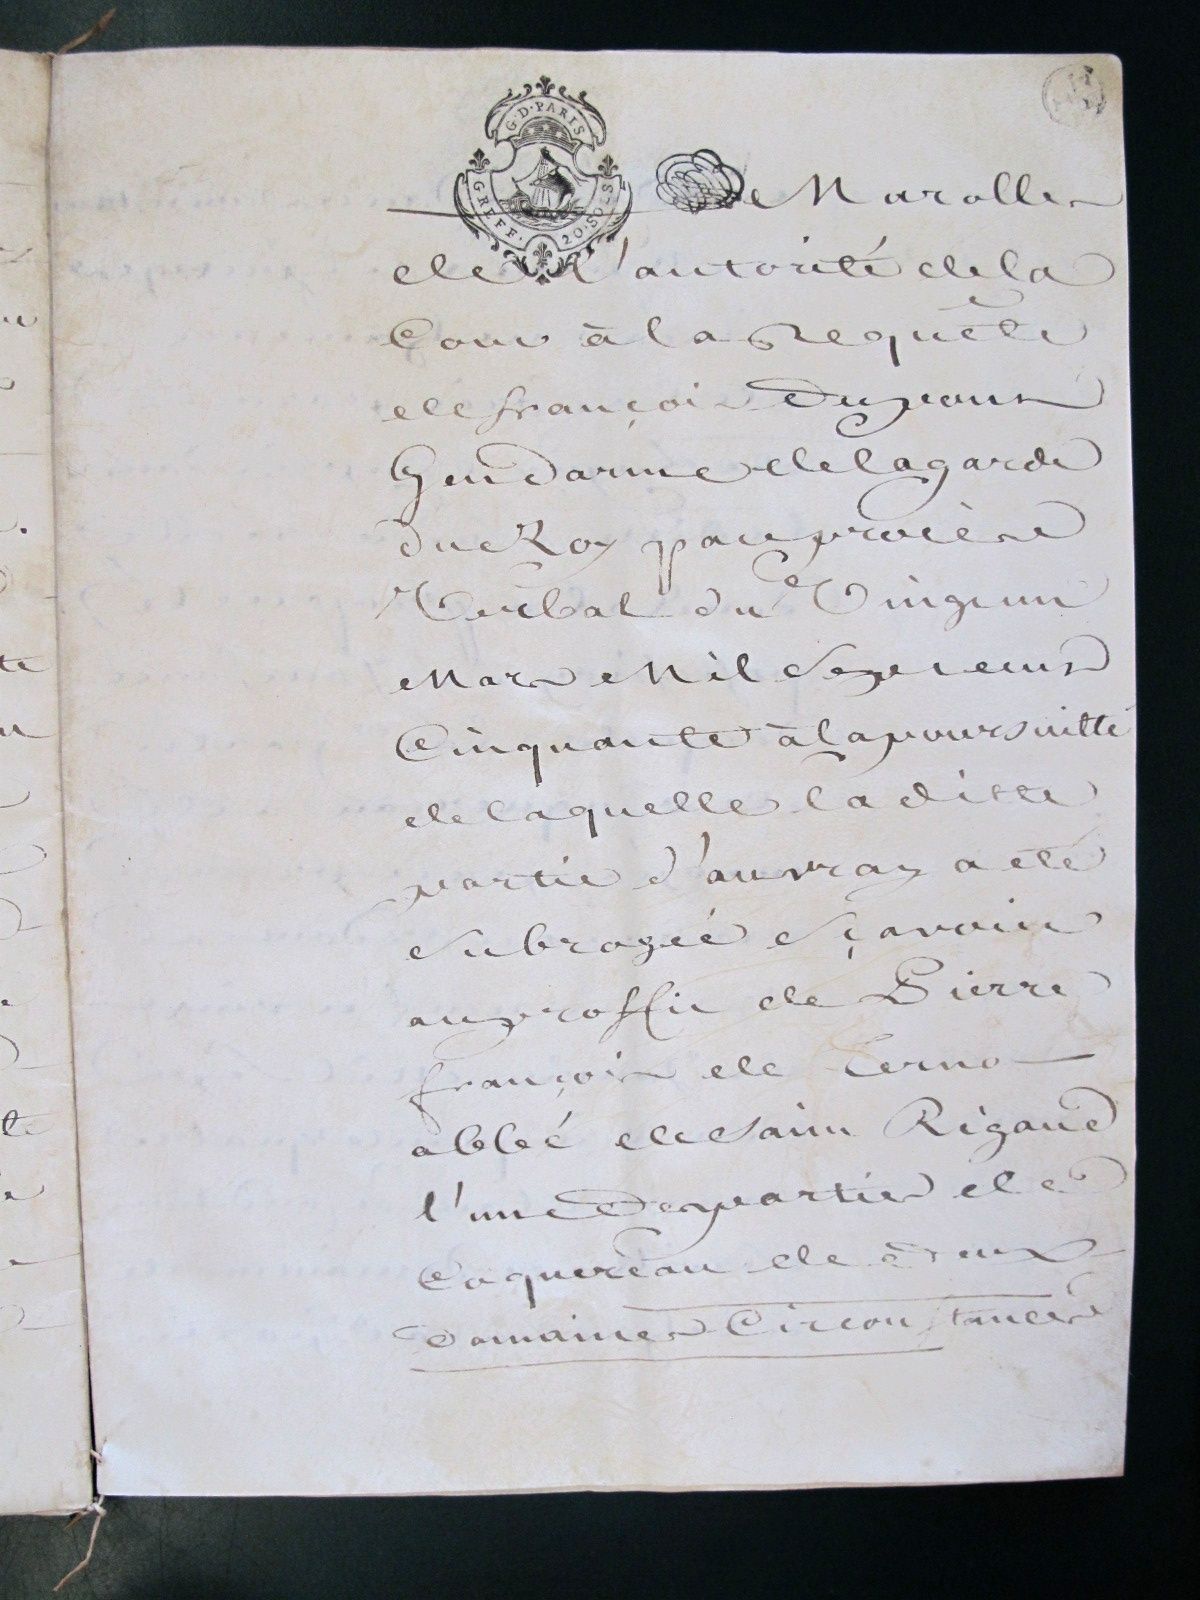 G·D·PARIS
GREFF· 20·SOLS
de Marolles
de l'autorité de la
Cour à la Requête
de françois Dupons
Gendarme de la garde
du Roy par procès
Verbal du Vingt un
Mars Mil Sept cens
Cinquante à la poursuitte
de laquelle la ditte
partie d'auvray a eté
subrogée sçavoir
au proffit de Pierre
françois de Terno
abbé de Saint Rigaud
l'une des parties de
Coquereau de deux
Domaines Circonstances